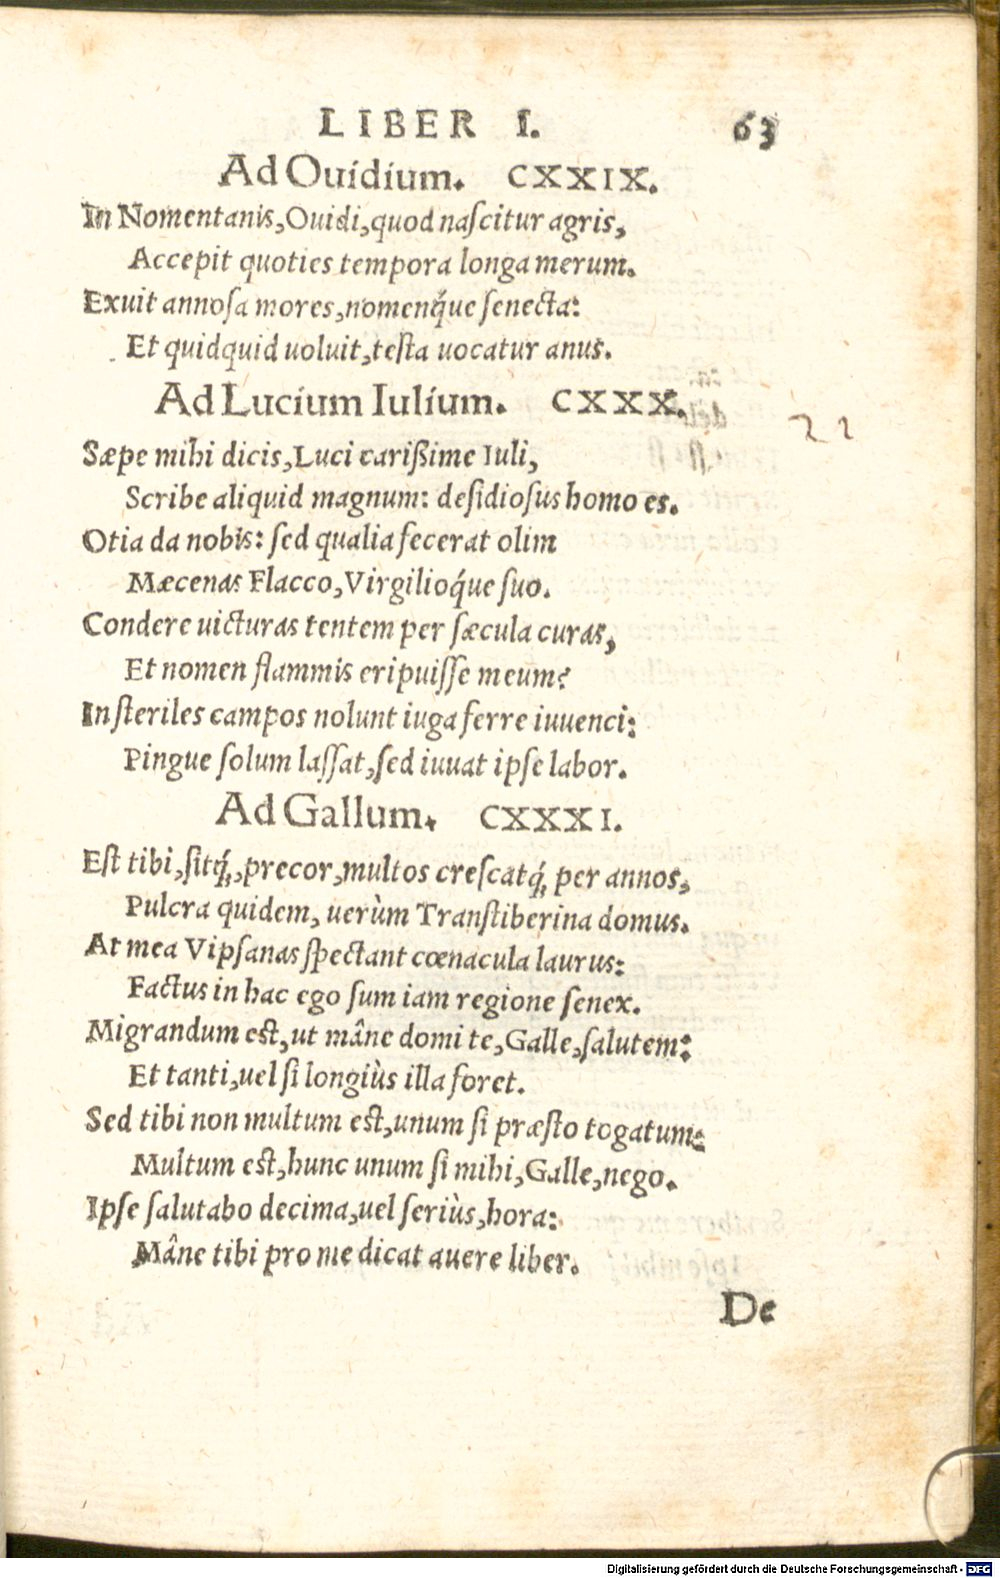 LIBER I. 63
Ad Ouidium. CXXIX.
In Nomentanis, Ouidi, quod naſcitur agris,
Accepit quoties tempora longa merum.
Exuit annoſa mores, nomenq́ue ſenecta:
Et quidquid uoluit, teſta uocatur anus.
Ad Lucium Iulium. CXXX.
22
Sæpe mihi dicis, Luci carißime Iuli,
Scribe aliquid magnum: deſidioſus homo es.
Otia da nobis: ſed qualia fecerat olim
Mæcenas Flacco, Virgilioq́ue ſuo.
Condere uicturas tentem per ſæcula curas,
Et nomen flammis eripuiſſe meum?
In ſteriles campos nolunt iuga ferre iuuenci:
Pingue ſolum laſſat, ſed iuuat ipſe labor.
Ad Gallum. CXXXI.
Eſt tibi, ſitq́;, precor, multos creſcatq́; per annos,
Pulcra quidem, uerùm Tranſtiberina domus.
At mea Vipſanas ſpectant cœnacula laurus:
Factus in hac ego ſum iam regione ſenex.
Migrandum eſt, ut mâne domi te, Galle, ſalutem:
Et tanti, uel ſi longiùs illa foret.
Sed tibi non multum eſt, unum ſi præſto togatum:
Multum eſt, hunc unum ſi mihi, Galle, nego.
Ipſe ſalutabo decima, uel ſeriùs, hora:
Mâne tibi pro me dicat auere liber.
De
Digitalisierung gefördert durch die Deutsche Forschungsgemeinschaft - DFG